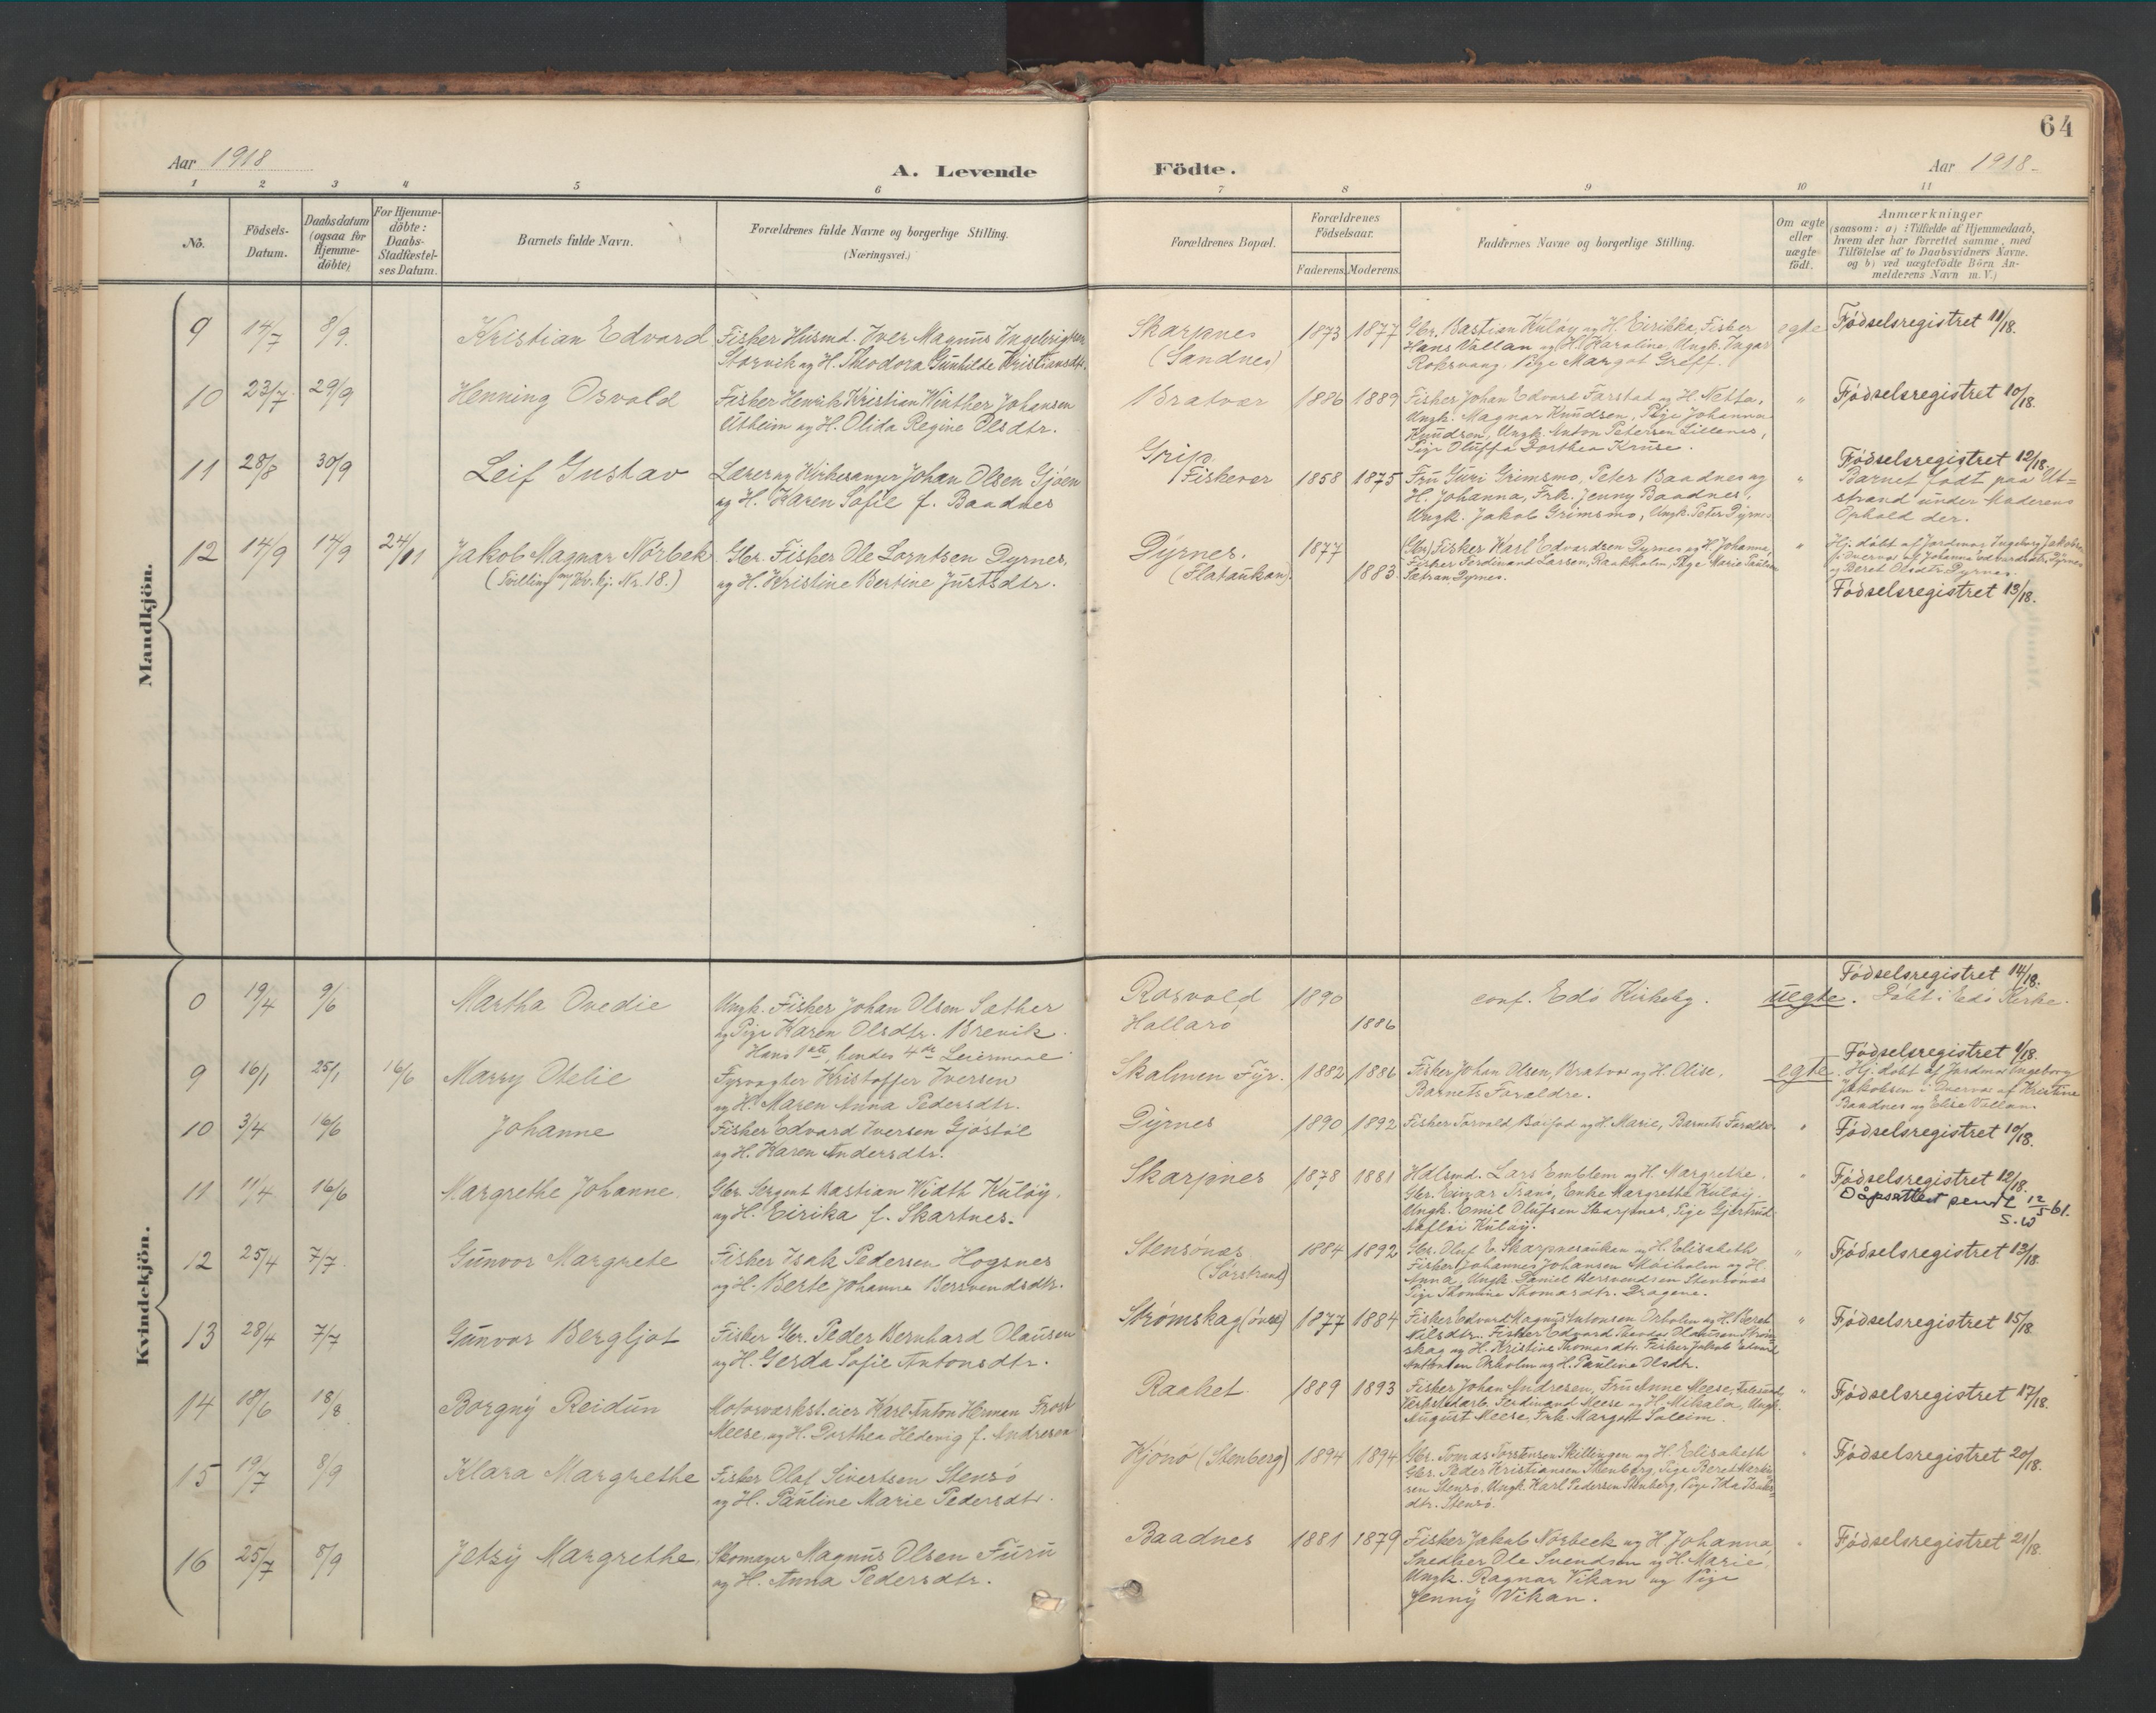 64
Aar 1918
A. Levende
Födte.
Aar 1918
1 2 3 4 5 6 7 8 9 10 11
No.
Födsels-Datum.
Daabsdatum (ogsaa for Hjemme-döbte)
For Hjemme-döbte: Daabs-Stadfæstel-ses Datum.
Barnets fulde Navn.
Forældrenes fulde Navne og borgerlige Stilling.
(Næringsvei.)
Forældrenes Bopæl.
Forældrenes Födselsaar.
Faderens. Moderens.
Faddernes Navne og borgerlige Stilling.
Om ægte eller uægte födt.
Anmærkninger
(saasom: a) i Tilfælde af Hjemmedaab,
hvem der har forrettet samme, med
Tilföielse af to Daabsvidners Navne.
og b) ved uægtefödte Börn An-
melderens Navn m. V.)
Mandkjön.
9 14/7 8/9. Kristian Edvard Fisker Husmd. Iver Magnus Ingebrigtsen
Storvik og H. Theodora Gunhilde Kristiansdtr.
Skarpnes
(Sandnes)
1873 1877
Gbr. Bastian Kuløy og H. Eirikka, Fisker
Hans Vullan og H. Karoline, Ungk. Ingar
Rokvang, Pige Margot Greff.
egte
Fødselsregistret 11/18.
10 23/7 29/9 Henning Osvald Fisker Henrik Kristian Winther Johansen
Utheim og H. Olida Regine Olsdtr.
Bratvær
1886 1889
Fisker Johan Edvard Farstad og H. Netta,
Ungk. Magnar Knudsen, Pige Johanna
Knudsen, Ungk. Anton Petersen Lillenes,
Pige Oluffa Dorthea Kruse.
"
Fødselsregistret 10/18.
11 28/8 30/9 Leif Gustav Lærer og Kirkesanger Johan Olsen Gjøen
og H. Karen Sofie f. Baadnes
Grip
Fiskevær
1858 1875
Fru Guri Grimsmo, Peter Baadnes og
H. Johanna, Frk. Jenny Baadnes,
Ungk. Jakob Grimsmo, Ungk. Peter Dyrnes
"
Fødselsregistret 12/18.
Barnet født paa Ut-
strand under Moderens
Ophold der.
12 14/9 14/9 24/11 Jakob Magnar Nórbek Gbr. Fisker Ole Lorntsen Dyrnes,
(Tvilling m/ Kv.kj. Nr. 18.) og H. Kristine Bertine Justsdtr.
Dyrnes.
(Flataukan)
1877
1883
(Gbr.) Fisker Karl Edvardsen Dyrnes og H. Johanna,
Fisker Ferdinand Larsen, Raakholm, Pige Marie Paulsen
Sætran Dyrnes.
"
Hj. døbt af Jordmor Ingeborg Jakobsen
i Overvær af Johanna Edvardsdtr. Dyrnes
og Beret Olsdtr. Dyrnes.
Fødselsregistret 13/18.
Kvindekjön.
0 19/4 9/6 Martha Ovedie Ungk. Fisker Johan Olsen Sæther
og Pige Karen Olsdtr. Brevik.
Hans 1ste, hendes 4de Leiermaal
Rosvold
Hallarø
1890
1886
conf. Edø Kirkebg.
uegte.
Fødselsregistret 14/18.
Døbt i Edø Kirke.
9 16/1 25/1 16/6 Marry Otelie Fyrvogter Kristoffer Iversen
og H. Maren Anna Pedersdtr.
Skalmen Fyr.
1882 1886
Fisker Johan Olsen, Bratvær og H. Olise,
Barnets Forældre.
egte.
Fødselsregistret 1/18.
Hj. døbt af Jordmor Ingeborg
Jakobsen i Overvær af Kristine
Baadnes og Elise Vollan.
10 3/4 16/6 Johanne Fisker Edvard Iversen Gjøstøl
og H. Karen Andersdtr.
Dyrnes
1890 1892
Fisker Torvald Boifod og H. Marie, Barnets Forældre.
"
Fødselsregistret 10/18.
11 11/4 16/6 Margrethe Johanne Gbr. Sergent Bastian Width Kuløy,
og H. Eirika f. Skarpnes.
Skarpnes
1878 1881
Hdlsmd. Lars Emblem og H. Margrethe.
Gbr. Einar Tranø, Enke Margrethe Kuløy,
Ungk. Emil Olufsen Skarpnes, Pige Gjertrud
Kuløy.
"
Fødselsregistret 12/18.
Dåpsattest sendt 12/5-61.
S.W
12 25/4 7/7. Gunvor Margrete Fisker Isak Pedersen Hogsnes
og H. Berte Johanna Berrvendsdtr.
Stensónes
(Sørstrand)
1884 1892
Gbr. Oluf E. Skarpnesaukan og H. Elisabeth
Fisker Johannes Johansen Skóiholm og H.
Anna, Ungk. Daniel Berrvendsen Stensónes
Pige Thomine Thomasdtr. Dragene.
"
Fødselsregistret 13/18.
13 28/4 7/7 Gunvor Bergljot Fisker Gbr. Peder Bernhard Olausen
og H. Gerda Sofie Antonsdtr.
Strømskag (øvre)
1877 1884
Fisker Edvard Magnus Antonsen Orholm og H. Beret
Nilsdtr. Fisker Edvard Theodor Olausen Strøm-
skag og H. Kristine Thomasdtr. Fisker Jakob Edvard
Antonsen Orholm og H. Pauline Olsdtr.
"
Fødselsregistret 15/18
14 18/6 18/8 Borgny Reidun Motorværkst.eier Karl Anton Herman Frost
Meese, og H. Dorthea Hedevig f. Andresen
Raaket.
1889 1893
Fisker Johan Andresen, Fru Anne Meese, Aalesund,
Verkstedarb. Ferdinand Meese og H. Mikala, Ungk.
August Meese, Frk. Margoth Soleim.
"
Fødselsregistret 17/18.
15 19/7 8/9 Klara Margrethe Fisker Olaf Sivertsen Stensø
og H. Pauline Marie Pedersdtr.
Kjønø (Stenberg)
1894 1894
Gbr. Tomas Torstensen Skillingen og H. Elisabeth
Gbr. Peder Kristiansen Stenberg, Pige Beret Martin-
sen Stensø, Ungk. Karl Pedersen Stenberg, Pige Ida Isaks-
dtr. Stensø.
"
Fødselsregistret 20/18.
16 25/7 8/9 Jetzy Margrethe. Skomager Magnus Olsen Furu
og H. Anna Pedersdtr.
Baadnes
1881 1879
Fisker Jakob Nórbeck og H. Johanna,
Snedker Ole Svendsen og H. Marie,
Ungk. Ragnar Vikan og Pige
Jenny Vikan.
"
Fødselsregistret 21/18.